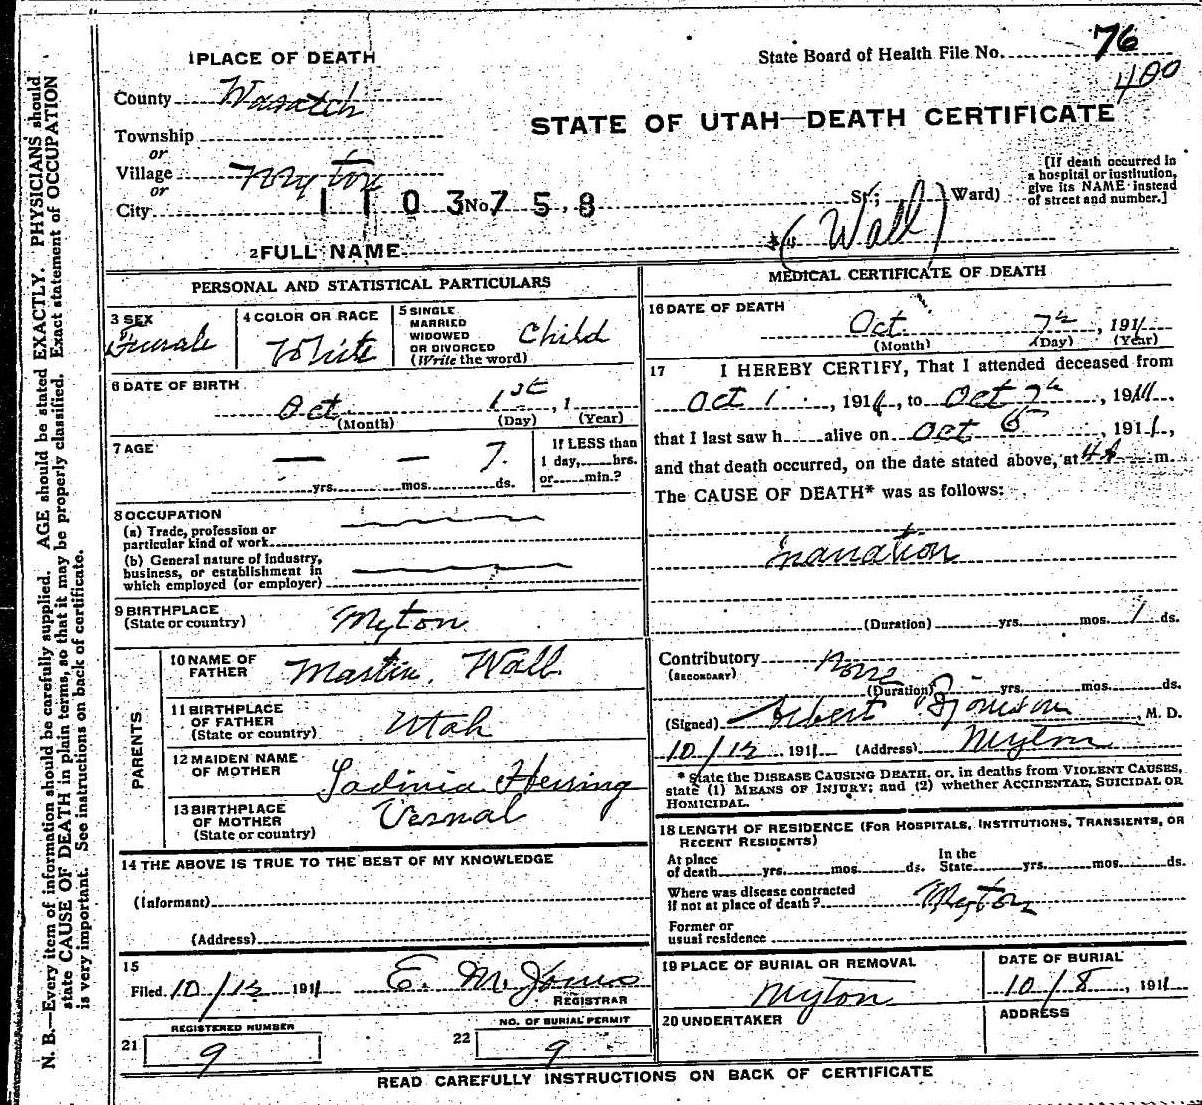 N. B.—Every item of information should be carefully supplied. AGE should be stated EXACTLY. PHYSICIANS should
state CAUSE OF DEATH in plain terms, so that it may be properly classified. Exact statement of OCCUPATION
is very important. See instructions on back of certificate.
1 PLACE OF DEATH
State Board of Health File No. 76
400
County Wasatch
STATE OF UTAH—DEATH CERTIFICATE
Township
or
Village Myton
or
City No. St.; Ward)
1103758
[If death occurred in
a hospital or institution,
give its NAME instead
of street and number.]
2 FULL NAME (Wall)
PERSONAL AND STATISTICAL PARTICULARS
3 SEX Female
4 COLOR OR RACE White
5 SINGLE
MARRIED
WIDOWED
OR DIVORCED
(Write the word) Child
6 DATE OF BIRTH
Oct 1st, 1
(Month) (Day) (Year)
7 AGE
— yrs. — mos. 7. ds.
If LESS than
1 day, hrs.
or min.?
8 OCCUPATION
(a) Trade, profession or
particular kind of work
(b) General nature of industry,
business, or establishment in
which employed (or employer)
9 BIRTHPLACE
(State or country) Myton
PARENTS
10 NAME OF
FATHER Martin Wall
11 BIRTHPLACE
OF FATHER
(State or country) Utah
12 MAIDEN NAME
OF MOTHER
13 BIRTHPLACE
OF MOTHER
(State or country) Vernal
14 THE ABOVE IS TRUE TO THE BEST OF MY KNOWLEDGE
(Informant)
(Address)
15
Filed 10/12 1911 E. M. Jones
REGISTRAR
REGISTERED NUMBER
21 9
NO. OF BURIAL PERMIT
22 9
MEDICAL CERTIFICATE OF DEATH
16 DATE OF DEATH
Oct. 7th, 1911
(Month) (Day) (Year)
17 I HEREBY CERTIFY, That I attended deceased from
Oct 1, 1911, to Oct 7th, 1911,
that I last saw h alive on Oct 6, 1911,
and that death occurred, on the date stated above, at 4 m.
The CAUSE OF DEATH* was as follows:
Inanation
(Duration) yrs. mos. 1 ds.
Contributory None
(SECONDARY)
(Duration) yrs. mos. ds.
(Signed) M. D.
10/12 1911 (Address) Myton
* State the DISEASE CAUSING DEATH, or, in deaths from VIOLENT CAUSES,
state (1) MEANS OF INJURY; and (2) whether ACCIDENTAL, SUICIDAL OR
HOMICIDAL.
18 LENGTH OF RESIDENCE (FOR HOSPITALS, INSTITUTIONS, TRANSIENTS, OR
RECENT RESIDENTS)
At place
of death yrs. mos. ds.
In the
State yrs. mos. ds.
Where was disease contracted
if not at place of death? Myton
Former or
usual residence
19 PLACE OF BURIAL OR REMOVAL
Myton
DATE OF BURIAL
10/8, 1911
20 UNDERTAKER
ADDRESS
READ CAREFULLY INSTRUCTIONS ON BACK OF CERTIFICATE